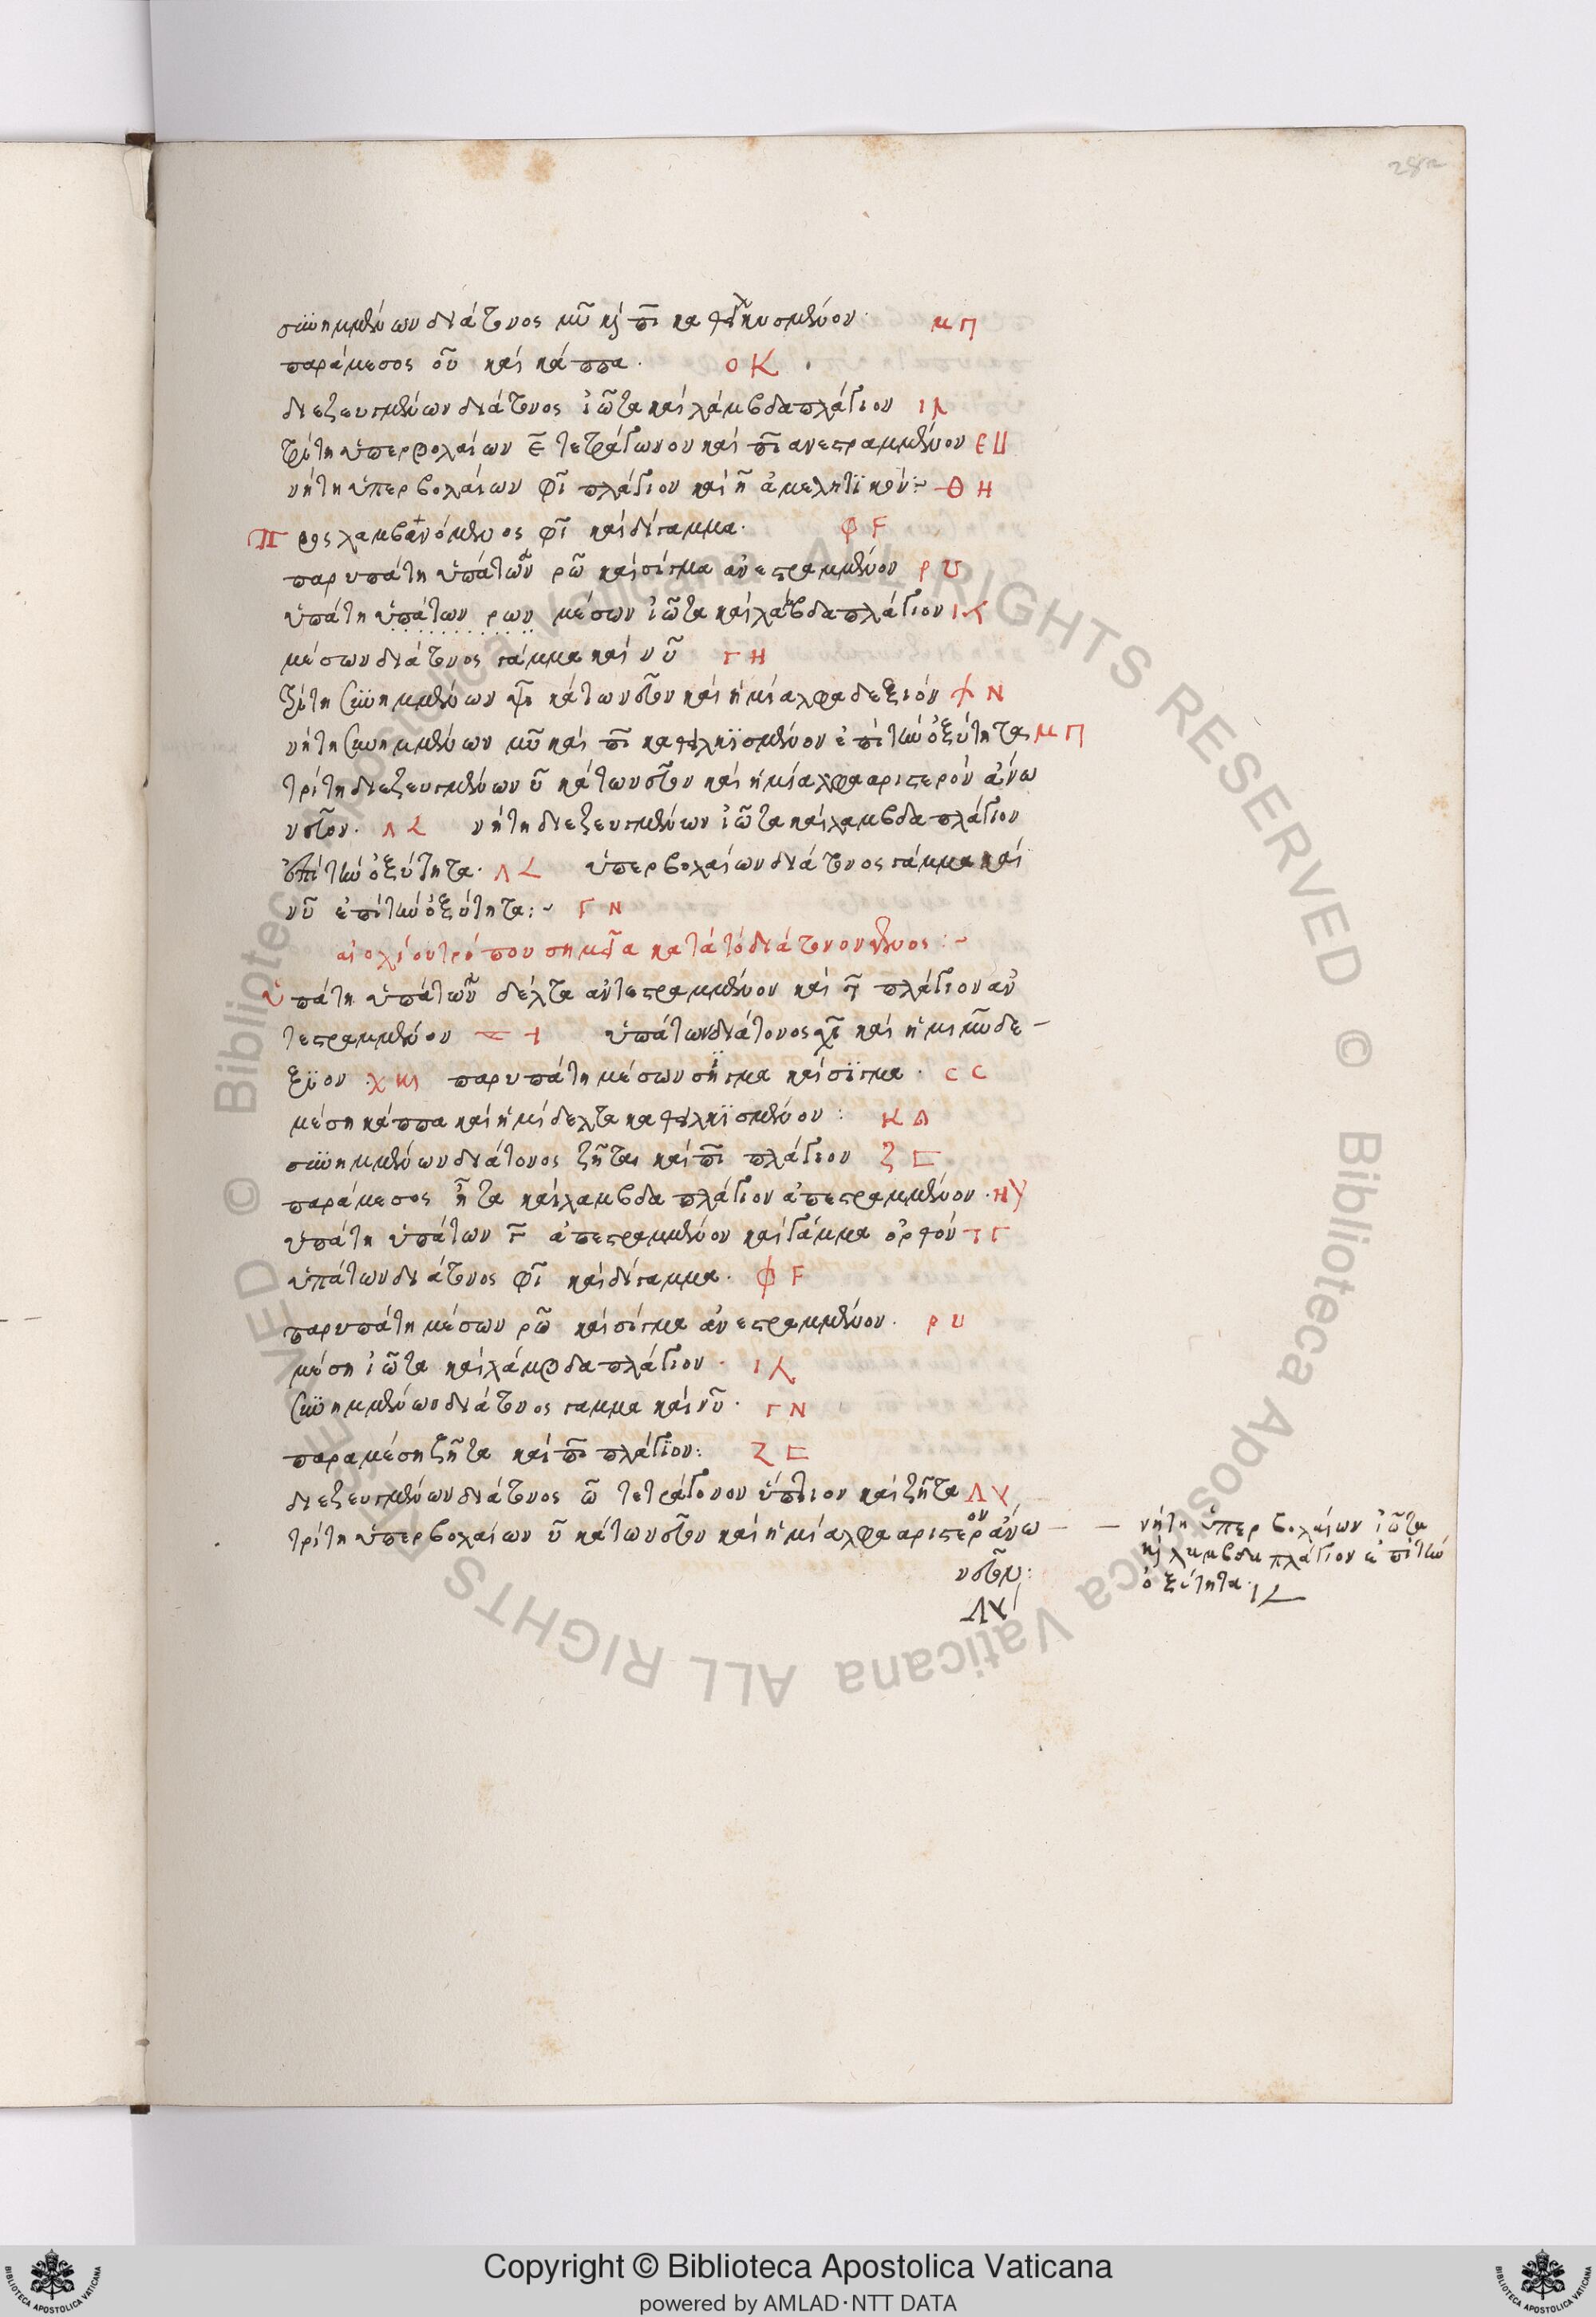 συνημμένων διάτονος μῦ καὶ πῖ καθειλκυσμένον· Μ Π
παράμεσος οὖ καὶ κάππα· Ο Κ
διεζευγμένων διάτονος ἰῶτα καὶ λάμβδα πλάγιον Ι
τρίτη ὑπερβολαίων ε̄ τετράγωνον καὶ πῖ ανεστραμμένον Ε
νήτη ὑπερβολαίων φῖ πλάγιον καὶ η̄ ἀμελητϊκόν:~ Θ Η
Προςλαμβανόμενος φῖ καὶ δίγαμμα· Φ F
παρυπάτη ὑπάτων ρῶ καὶ σίγμα ἀνεστραμμένον Ρ
ὑπάτη ὑπάτων ρων μέσων ἰῶτα καὶ λάμβδα πλάγιον Ι
μέσων διάτονος γάμμα καὶ νῦ Γ Η
τρίτη συνημμένων ψῖ κάτω νεῦον καὶ ἡμίαλφα δεξιόν Ν
νήτη συνημμένων μῦ καὶ πῖ καθειλκϊσμένον ἐπὶ τὴν ὀξύτητα Μ Π
τρίτη διεζευγμένων ῦ κάτω νεῦον καὶ ἡμίαλφα αριστερὸν ἄνω
νεῦον· νήτη διεζευγμένων ἰῶτα καὶ λαμβδα πλάγιον
ἐπὶ τὴν ὀξύτητα· ὑπερβολαίων διάτονος γάμμα καὶ
νῦ ἐπὶ τὴν ὀξύτητα:~ Γ Ν
αἰολίου τρόπου σημεῖα κατὰ τὸ διάτονον γένος:~
ὑπάτη ὑπάτων δέλτα ἀντεστραμμένον καὶ πλάγιον ἀν
τεστραμμένον ὑπάτων διάτονος χῖ καὶ ἡμιμῦ δε-
ξϊον Χ παρυπάτη μέσων σήγμα καὶ σῖγμα· C C
μέση κάππα καὶ ἡμίδελτα καθειλκϊσμένον: Κ
συνημμένων διάτονος ζῆτα καὶ πῖ πλάγιον Ζ
παράμεσος ἦτα καὶ λαμβδα πλάγιον ἀπεστραμμένον· Η
ὑπάτη ὑπάτων ἀπεστραμμένον καὶ γάμμα ὀρθόν Γ
ὑπάτων διάτονος φῖ καὶ δίγαμμα· Φ F
παρυπάτη μέσων ρῶ καὶ σίγμα ἀνεστραμμένον· Ρ
μέση ἰῶτα καὶ λάμβδα πλάγιον· Ι
συνημμένων διάτονος γαμμα καὶ νῦ· Γ Ν
παραμέση ζῆτα καὶ πῖ πλάγϊον: Ζ
διεζευγμένων διάτονος ῶ τετράγονον ὕπτιον καὶ ζῆτα
τρίτη ὑπερβολαίων ῦ κάτω νεῦον καὶ ἡμίαλφα αριστερον ἄνω
νεῦον:
νήτη ὑπερβολαίων ἰῶτα
καὶ λαμβδα πλάγιον ἐπὶ τὴν
ὀξίτητα· Ι
Copyright © Biblioteca Apostolica Vaticana
powered by AMLAD·NTT DATA
© Biblioteca Apostolica Vaticana ALL RIGHTS RESERVED © Biblioteca Apostolica Vaticana ALL RIGHTS RESERVED